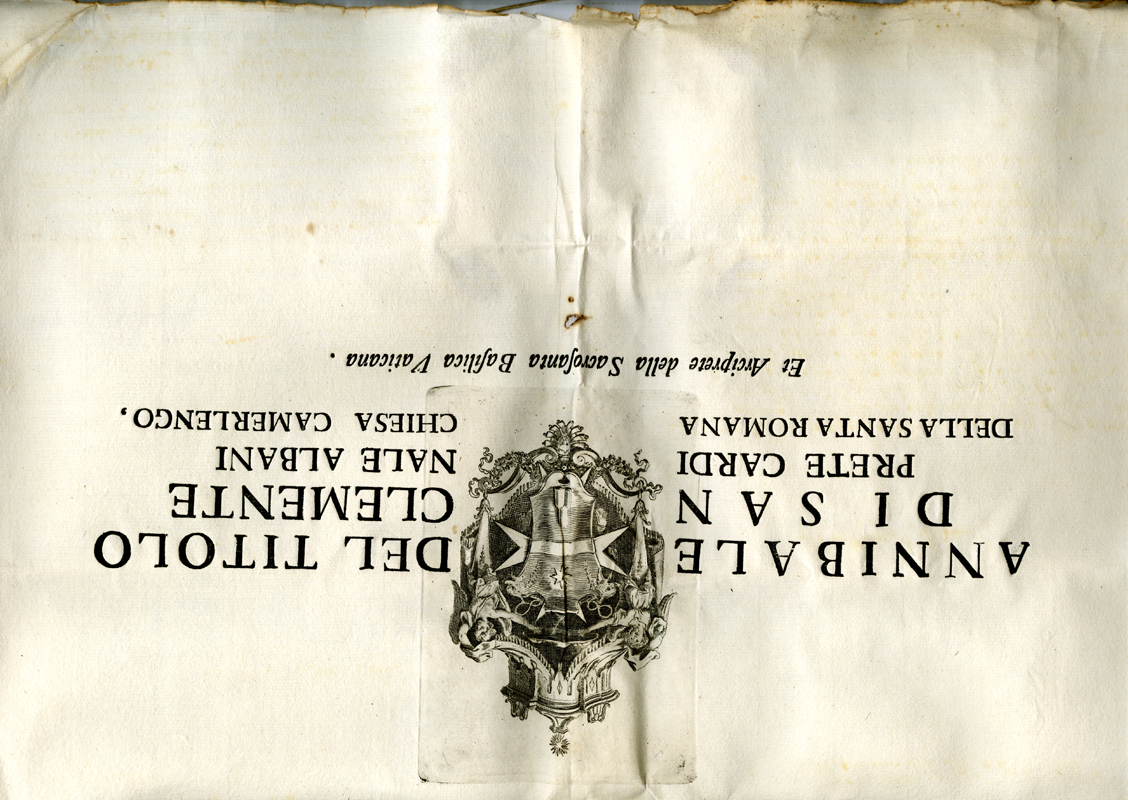 ANNIBALE DEL TITOLO
DI SAN CLEMENTE
PRETE CARDINALE ALBANI
DELLA SANTA ROMANA CHIESA CAMERLENGO,
Et Arciprete della Sacroſanta Baſilica Vaticana.